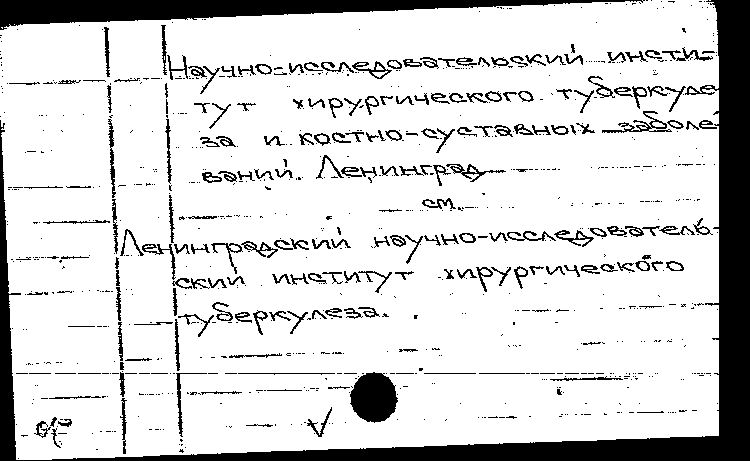 Научно-исследовательский инсти-
тут хирургического туберкуле-
за и костно-суставных заболе-
ваний. Ленинград
см.
Ленинградский научно-исследователь-
ский институт хирургического
туберкулеза.